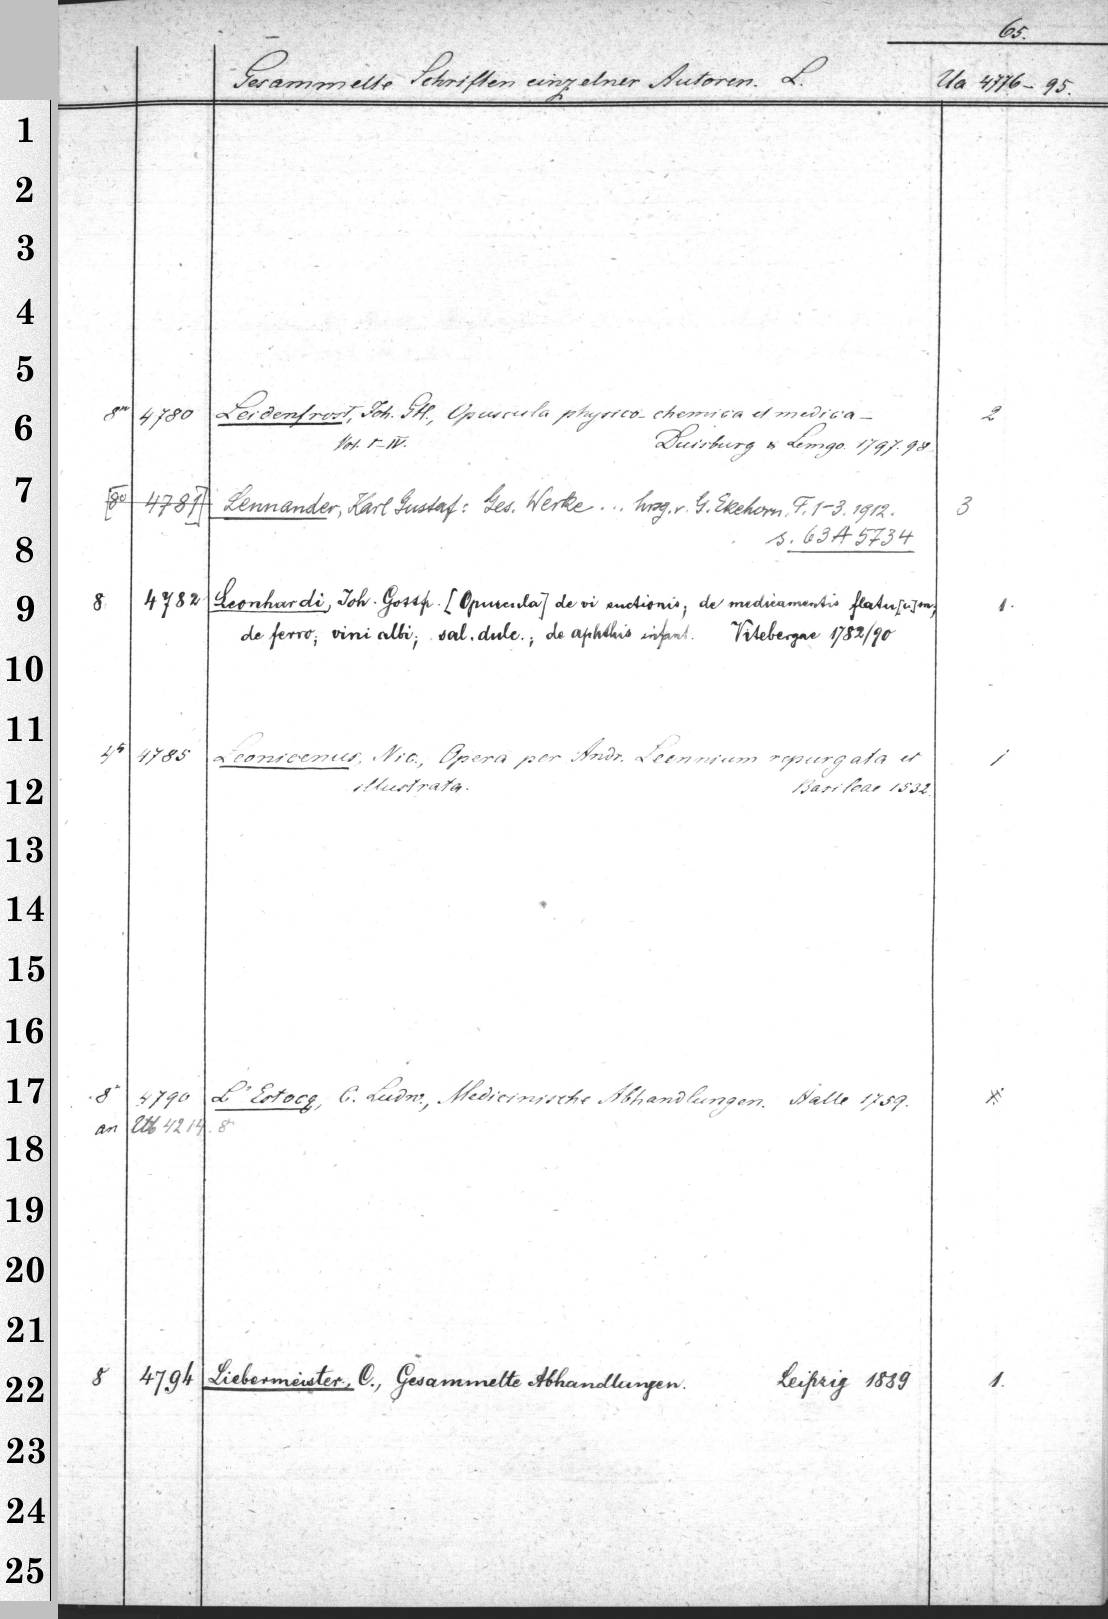 65.
Gesammelte Schriften einzelner Autoren. L. Ua 4776-95.
1
2
3
4
5
6
8° 4780 Leidenfrost, Joh. Gtl., Opuscula physico-chemica et medica- 2
Vol. I-IV. Duisburg & Lemgo. 1797.98
7
[8° 4781] Lennander, Karl Gustaf: Ges. Werke ... hrsg. v. G. Ekehorn. T. 1-3. 1912. 3
s. 63 A 5734
8
9
8 4782 Leonhardi, Joh. Gottfr. [Opuscula] de vi suctionis; de medicamentis flatu[u]m; 1.
de ferro; vini albi; sal. dulc.; de aphthis infant. Vitebergae 1782/90
10
11
4° 4785 Leonicenus, Nic., Opera per Andr. Leennium repurgata et 1
illustrata. Basileae 1532.
12
13
14
15
16
17
8° 4790 L'Estocq, C. Ludw., Medicinische Abhandlungen. Halle 1759.
an Ub 4214. 8°
18
19
20
21
22
8 4794 Liebermeister, C., Gesammelte Abhandlungen. Leipzig 1889 1.
23
24
25